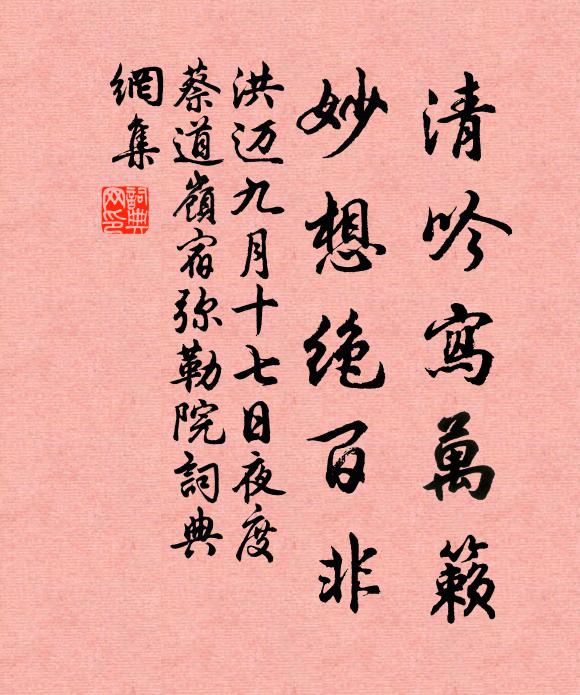 清吟寫萬籟
妙想絶百非
洪迈九月十七日夜度
蔡道嶺宿弥勒院詞典
網集
詞典
网印